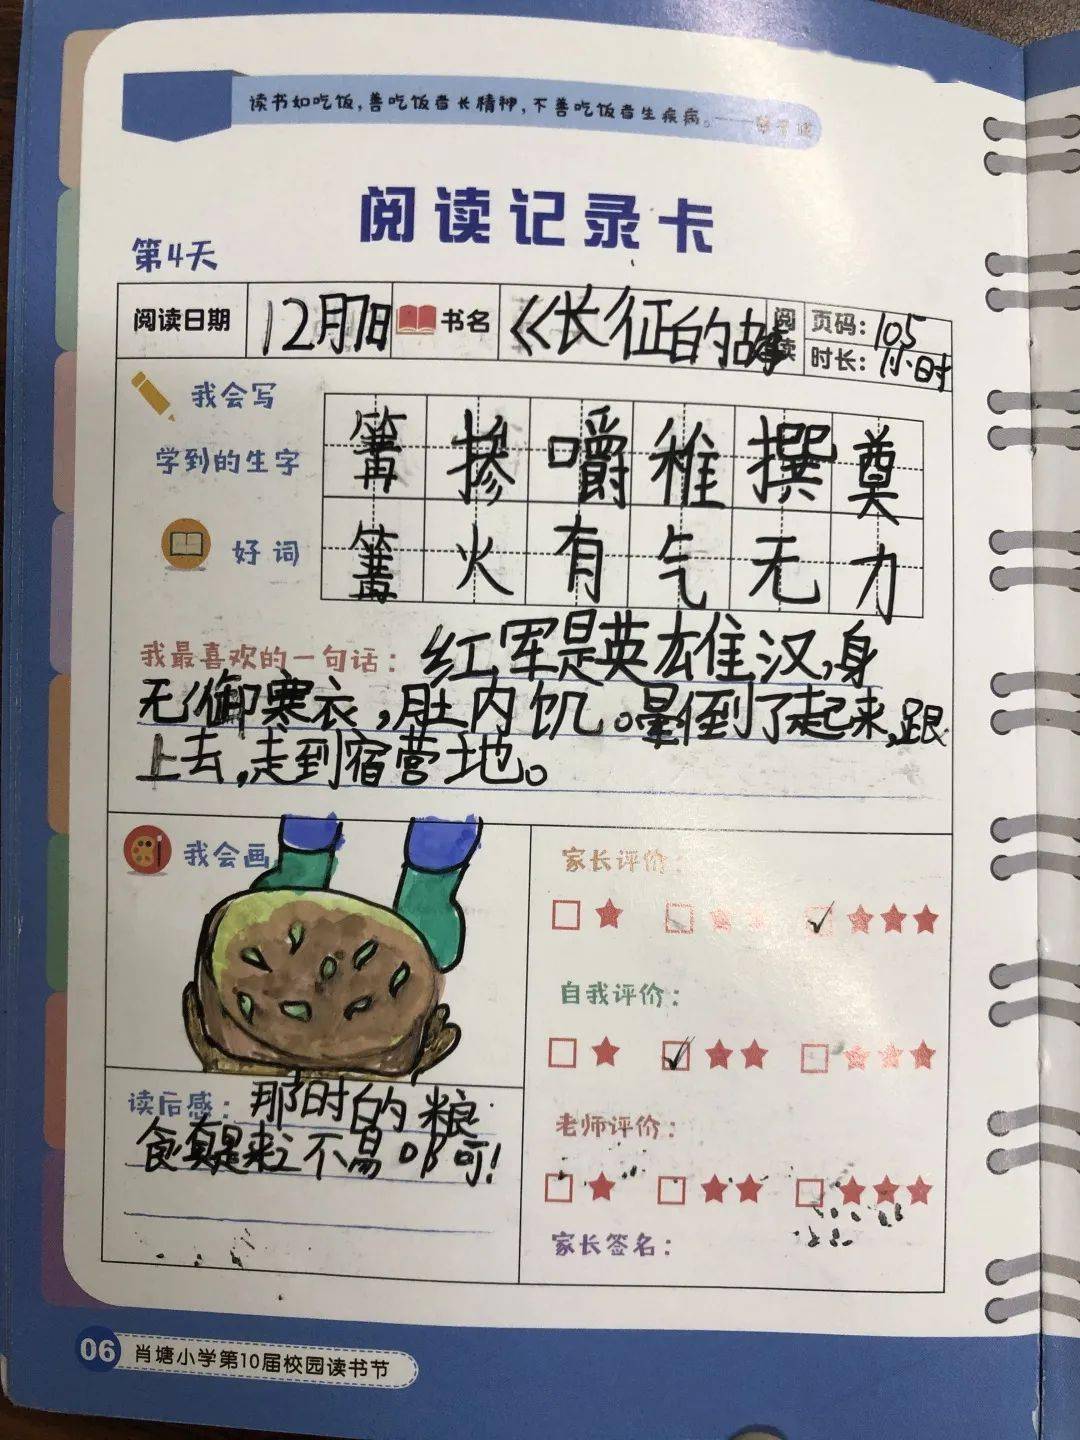 读书如吃饭,善吃饭者长精神,不善吃饭者生疾病。
阅读记录卡
第4天
阅读日期 12月7日 书名 《长征的故事 阅读 页码: 105
时长: 1小时
我会写
学到的生字 篝 掺 嚼 稚 撰 奠
好词 篝 火 有 气 无 力
我最喜欢的一句话: 红军是英雄汉,身
无御寒衣,肚内饥。晕倒了起来,跟
上去,走到宿营地。
我会画
家长评价:
自我评价:
老师评价:
家长签名:
读后感: 那时的粮
食真是来之不易呀!
06 肖塘小学第10届校园读书节